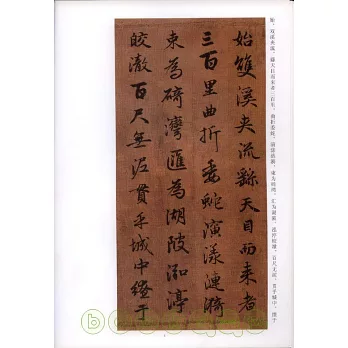 始，双溪夹流，繇天目而来者三百里，曲折委蛇，演漾涟漪，束为碕湾，汇为湖陂，泓渟皎澈，百尺无泥，贯乎城中，缭于
始雙溪夾流繇天目而來者
三百里曲折委蛇演漾漣漪
束為碕灣匯為湖陂泓渟
皎澈百尺無泥貫乎城中繚于